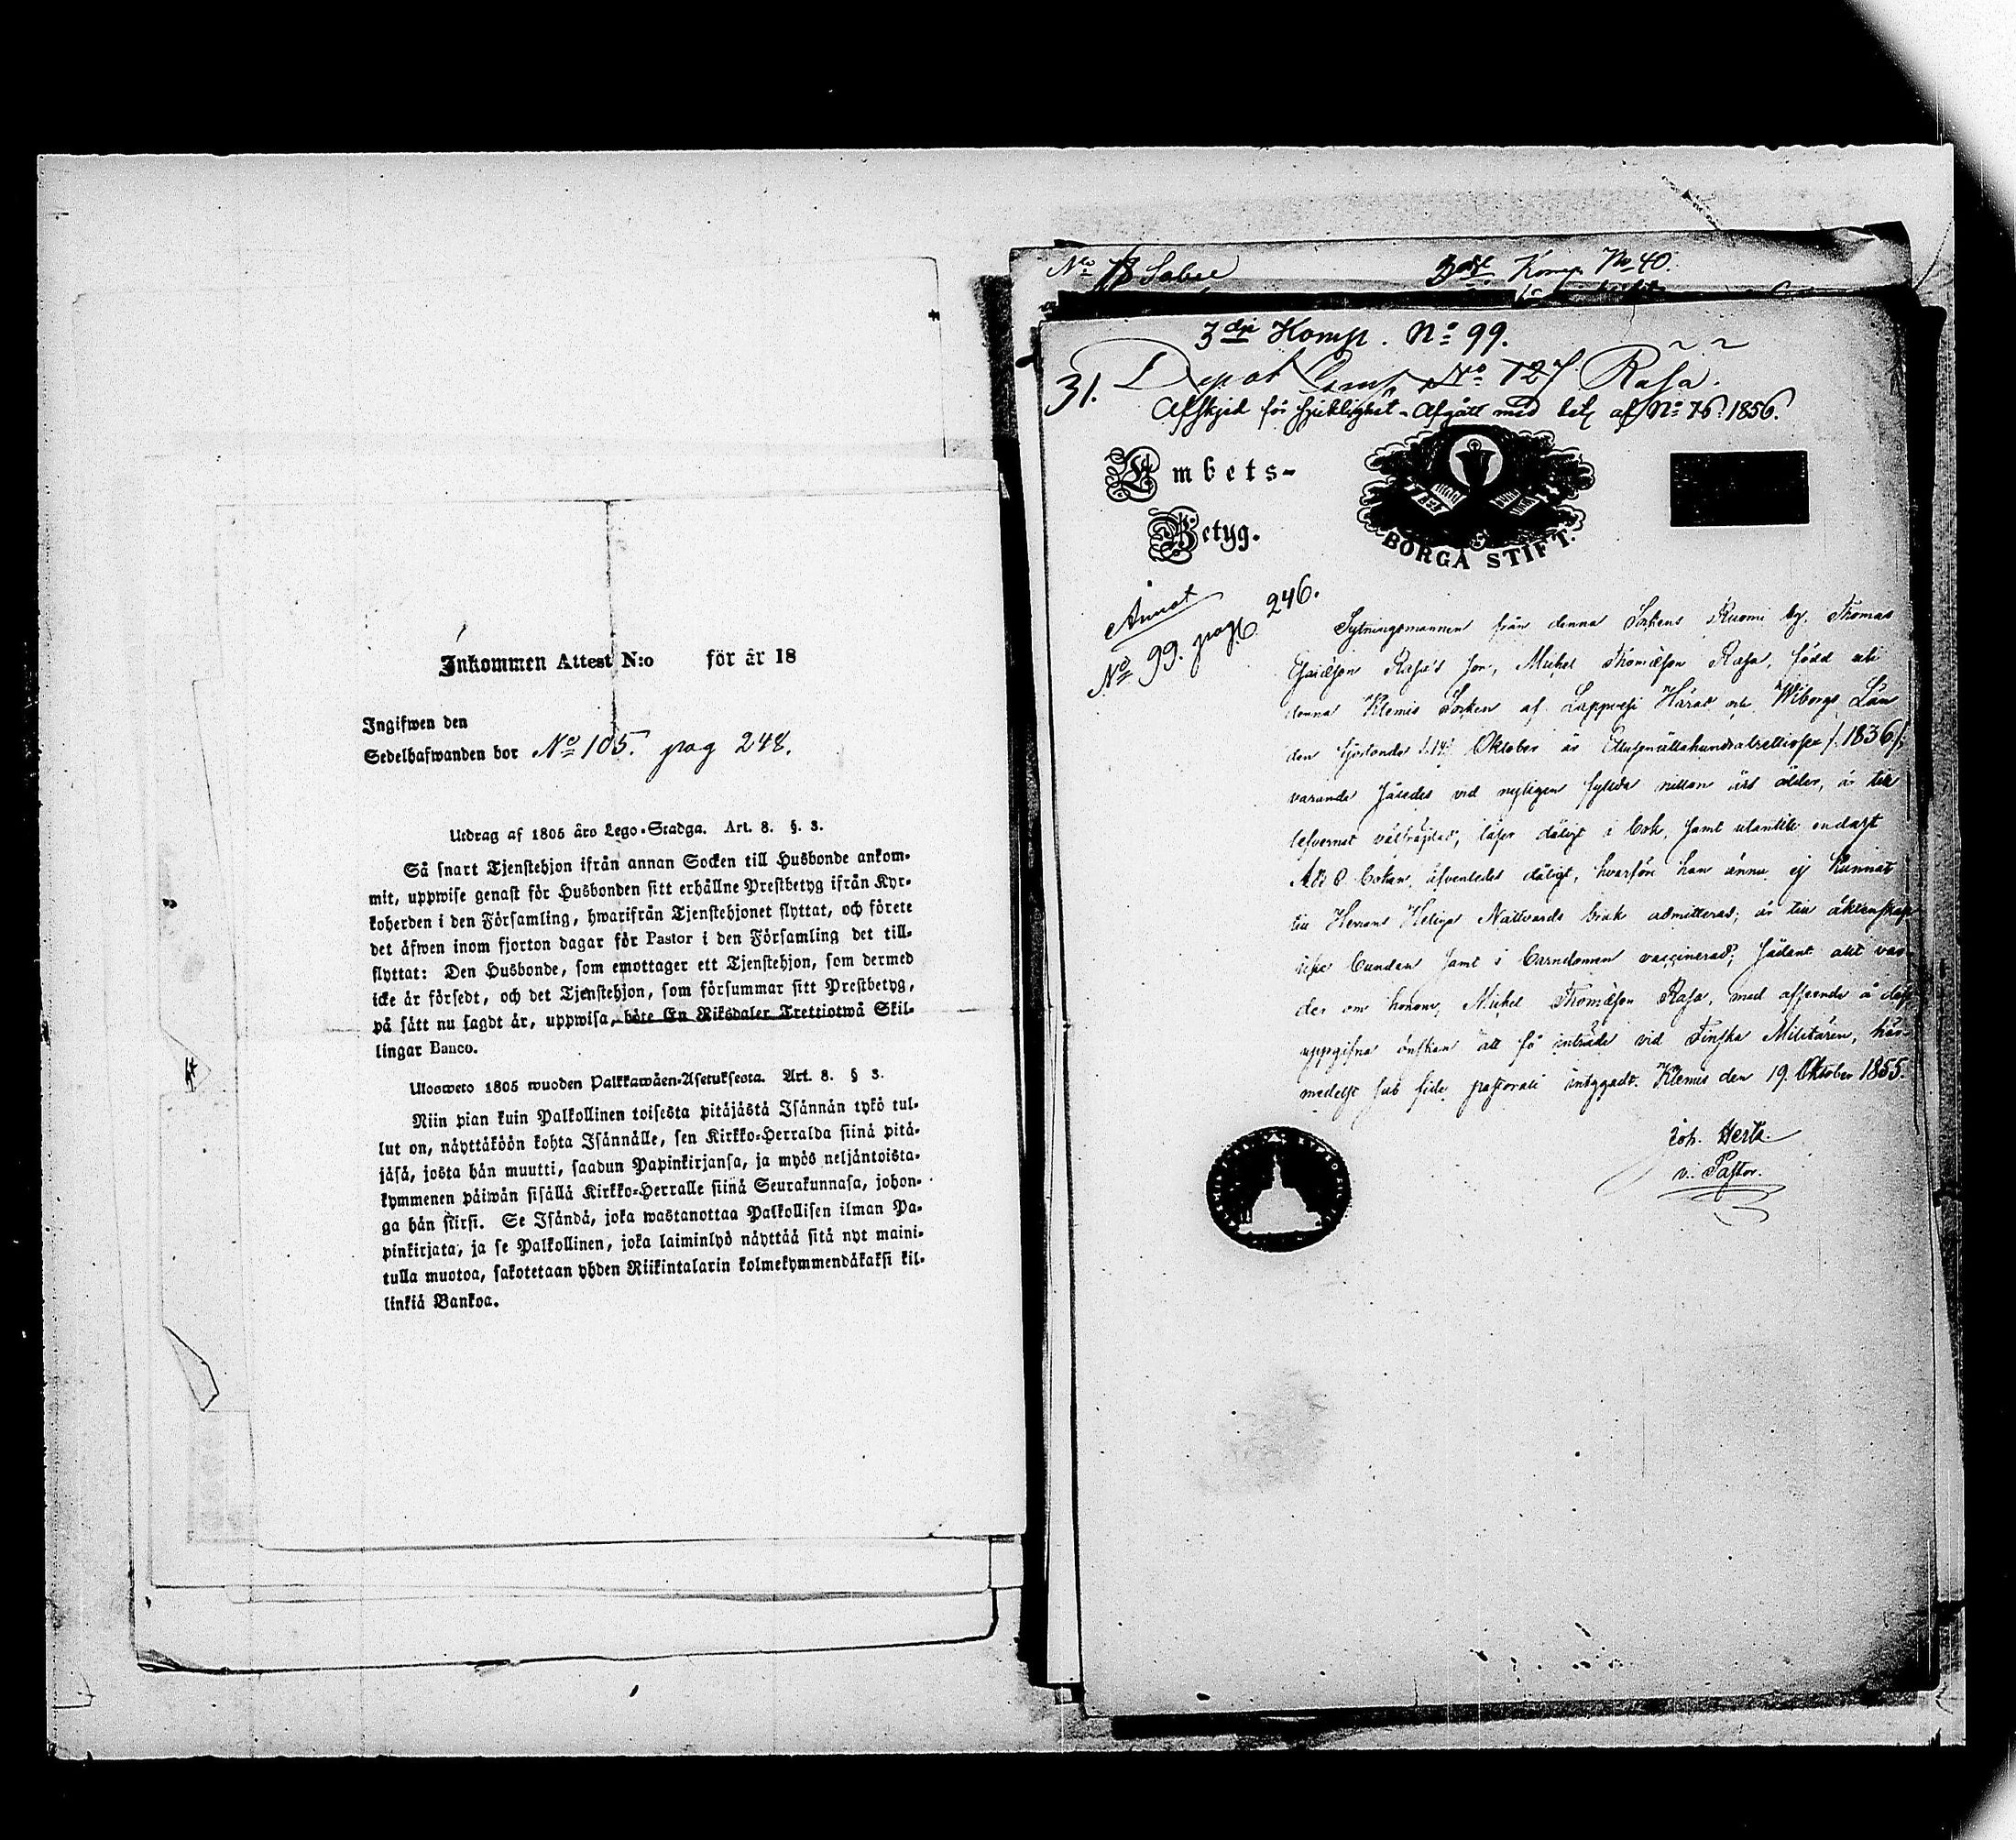 Inkommen Attest N:o för år 18
Ingifwen den
Sedelhafwanden bor No 105. pag 248.
Utdrag af 1805 års Lego-Stadga. Art. 8. §. 3.
Så snart Tjenstehjon ifrån annan Socken till Husbonde ankom-
mit, uppwise genast för Husbonden sitt erhållne Prestbetyg ifrån Kyr-
koherden i den Församling, hwarifrån Tjenstehjonet flyttat, och förete
det äfwen inom fjorton dagar för Pastor i den Församling det till-
flyttat: Den Husbonde, som emottager ett Tjenstehjon, som dermed
icke är försedt, och det Tjenstehjon, som försummar sitt Prestbetyg,
på sätt nu sagdt är, uppwisa, böte En Riksdaler Trettiotwå Skil-
lingar Banco.
Ulosweto 1805 wuoden Palkkawäen-Asetuksesta. Art. 8. § 3.
Niin pian kuin Palkollinen toisesta pitäjästä Isännän tykö tul-
lut on, näyttäköön kohta Isännälle, sen Kirkko-Herralda siinä pitä-
jäsä, josta hän muutti, saadun Papinkirjansa, ja myös neljäntoista-
kymmenen päiwän sisällä Kirkko-Herralle siinä Seurakunnasa, johon-
ga hän siirsi. Se Isändä, joka wastanottaa Palkollisen ilman Pa-
pinkirjata, ja se Palkollinen, joka laiminlyö näyttää sitä nyt maini-
tulla muotoa, sakotetaan yhden Riikintalarin kolmekymmendäkaksi kil-
linkiä Bankoa.
No Komp. No 40.
3dje Komp. No 99.
31. Depot Comp No 127 Rasa.
Afsked för sjuklighet - Afgått med bet af No 76. 1856.
Embets-
Betyg.
BORGÅ STIFT.
Annot
No 99. pag 246.
Sytningsmannen från denna Sockens Kuomi by, Thomas
Rasa's son, Michel Thomasson Rasa, född uti
denna Klemis Socken af Lappvesi Härad och Wiborgs Län
den fjortonde /:14:/ Oktober år Ettusenåttahundratrettiosex /:1836:/,
varande således vid nyligen fyllda nitton års ålder, är till
lefvernet välfrejdad, läser dåligt i bok, samt utantill endast
A B C bokan, äfvenledes dåligt, hvarföre han ännu ej kunnat
till Herrans Heliga Nattvards bruk admitteras; är till äktenskap
icke bunden samt i barndomen vaccinerad; Sådant allt var-
der om honom, Michel Thomasson Rasa, med afseende å dess
uppgifna önskan att få inträda vid Finska Militären, här-
medelst sub fide pastorali intygadt. Klemis den 19. Oktober 1855.
Joh. Hertz.
v. Pastor.